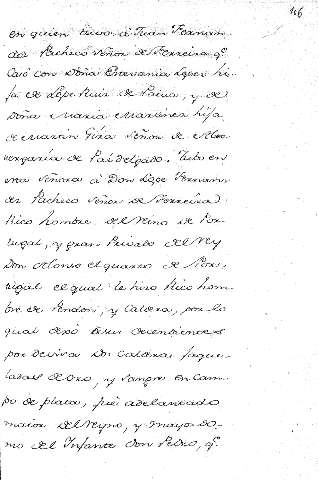 166
en quien tuvo á Juan Fernan-
des Pacheco Señor de Ferreira q.e
Casó con Doña Estevania Lopes hi-
ja de Lope Ruis de Paiva, y de
Doña Maria Martines hija
de Martin Gira Señor de Alve
vergaria de Paidelgado. Tubo en
esta Señora á Don Lope Fernan-
des Pacheco Señor de Ferreira:
Rico hombre del Reino de Por-
tugal, y gran Privado del Rey
Don Alonso el quarto de Por-
tugal el qual le hiso Rico hom-
bre de Pendon, y Caldera, por lo
qual dexó á sus decendientes
por devisa Dos Calderas jaque-
ladas de oro, y sangre en Cam-
po de plata, fué adelantado
maior del Reyno, y mayordo-
mo del Infante Don Pedro, q.e